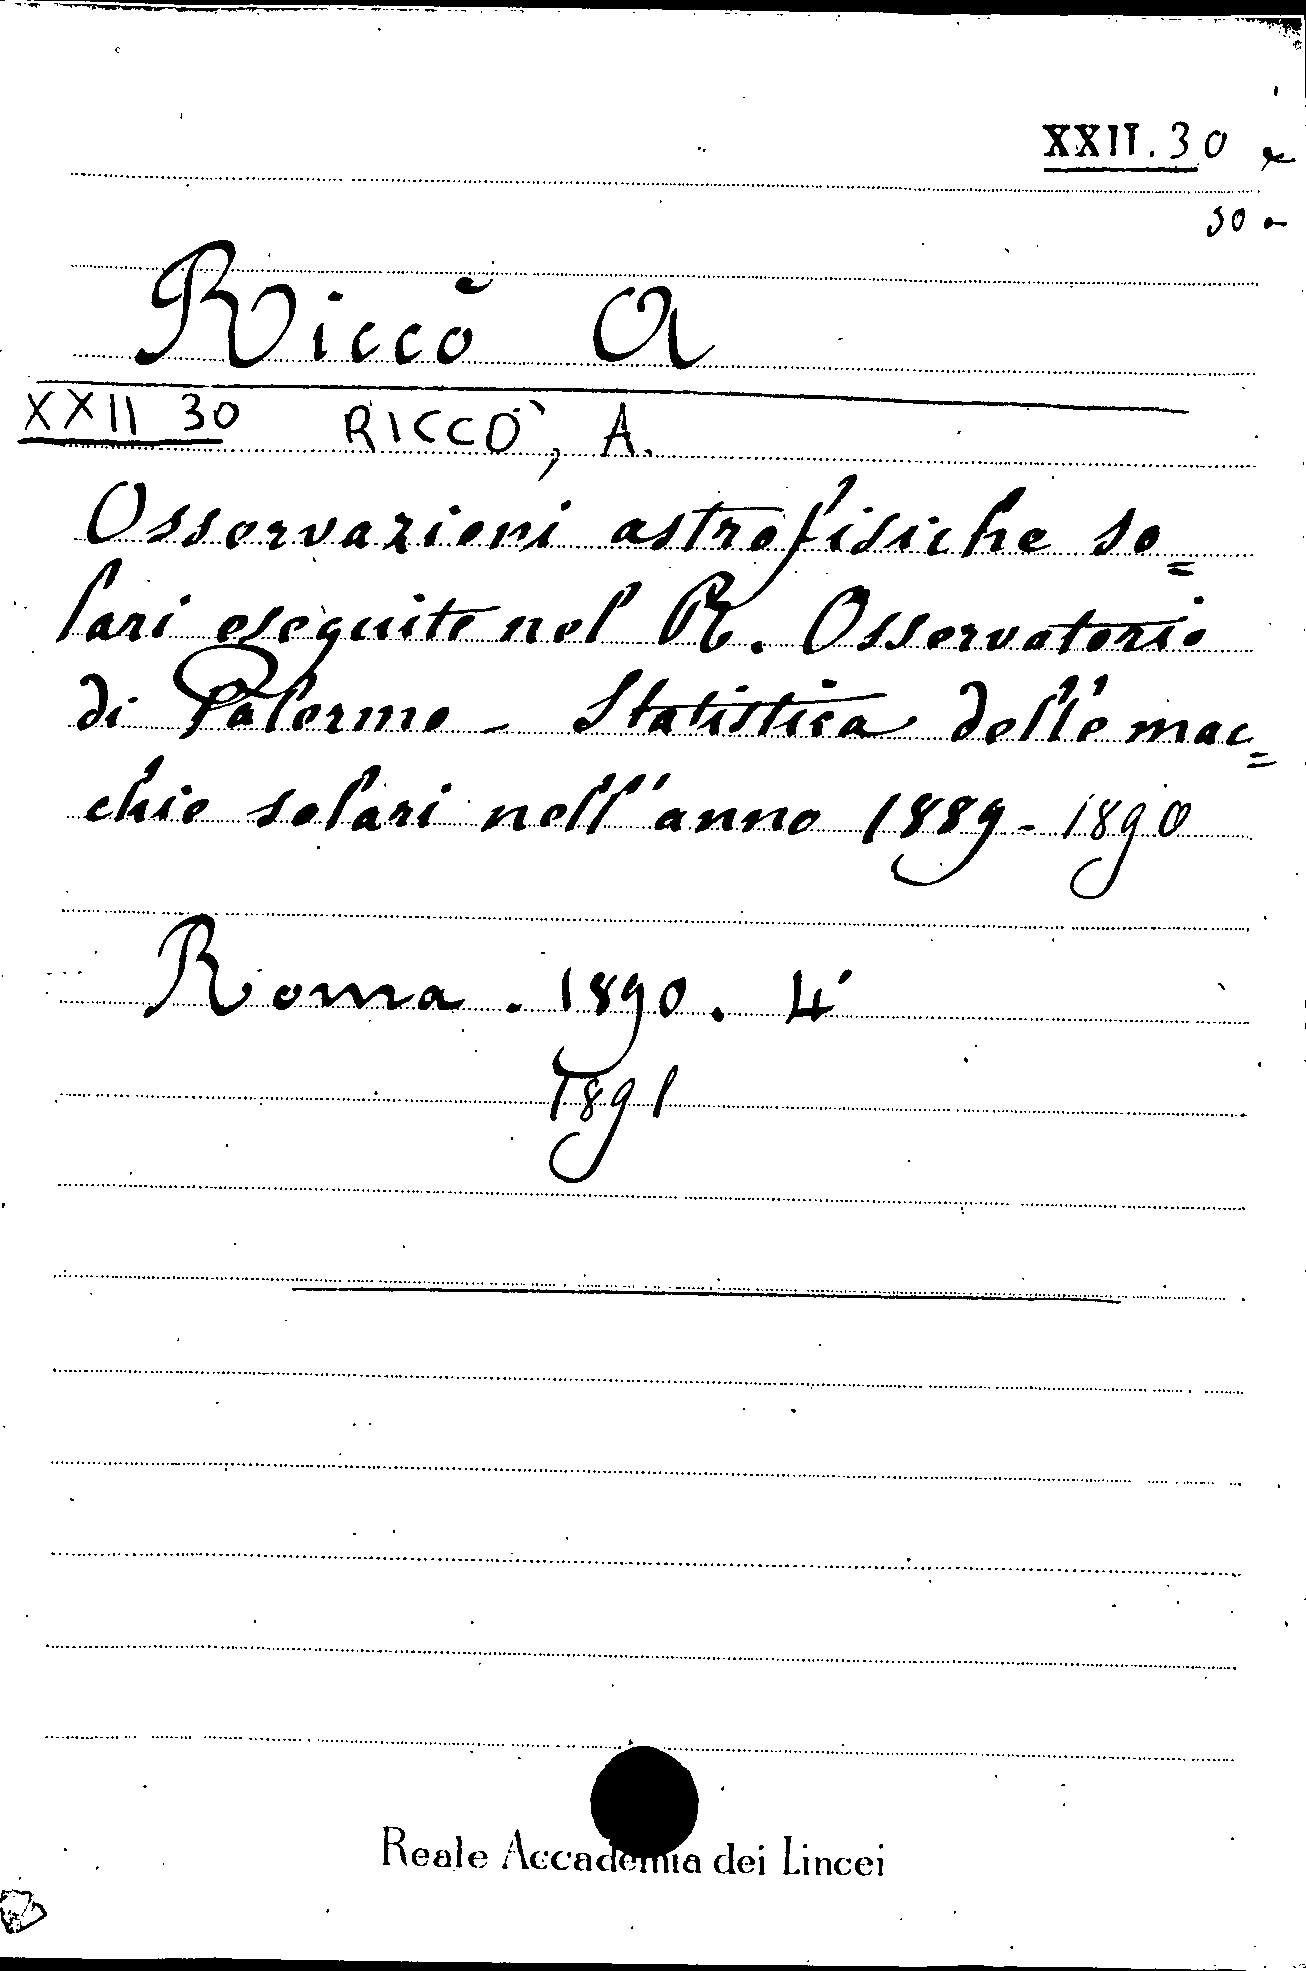 XXII.30
30 a
Riccò A
XXII 30 RICCÒ, A.
Osservazioni astrofisiche so=
lari eseguite nel R. Osservatorio
di Palermo - Statistica delle mac=
chie solari nell'anno 1889 - 1890
Roma . 1890 . 4°
1891
Reale Accademia dei Lincei